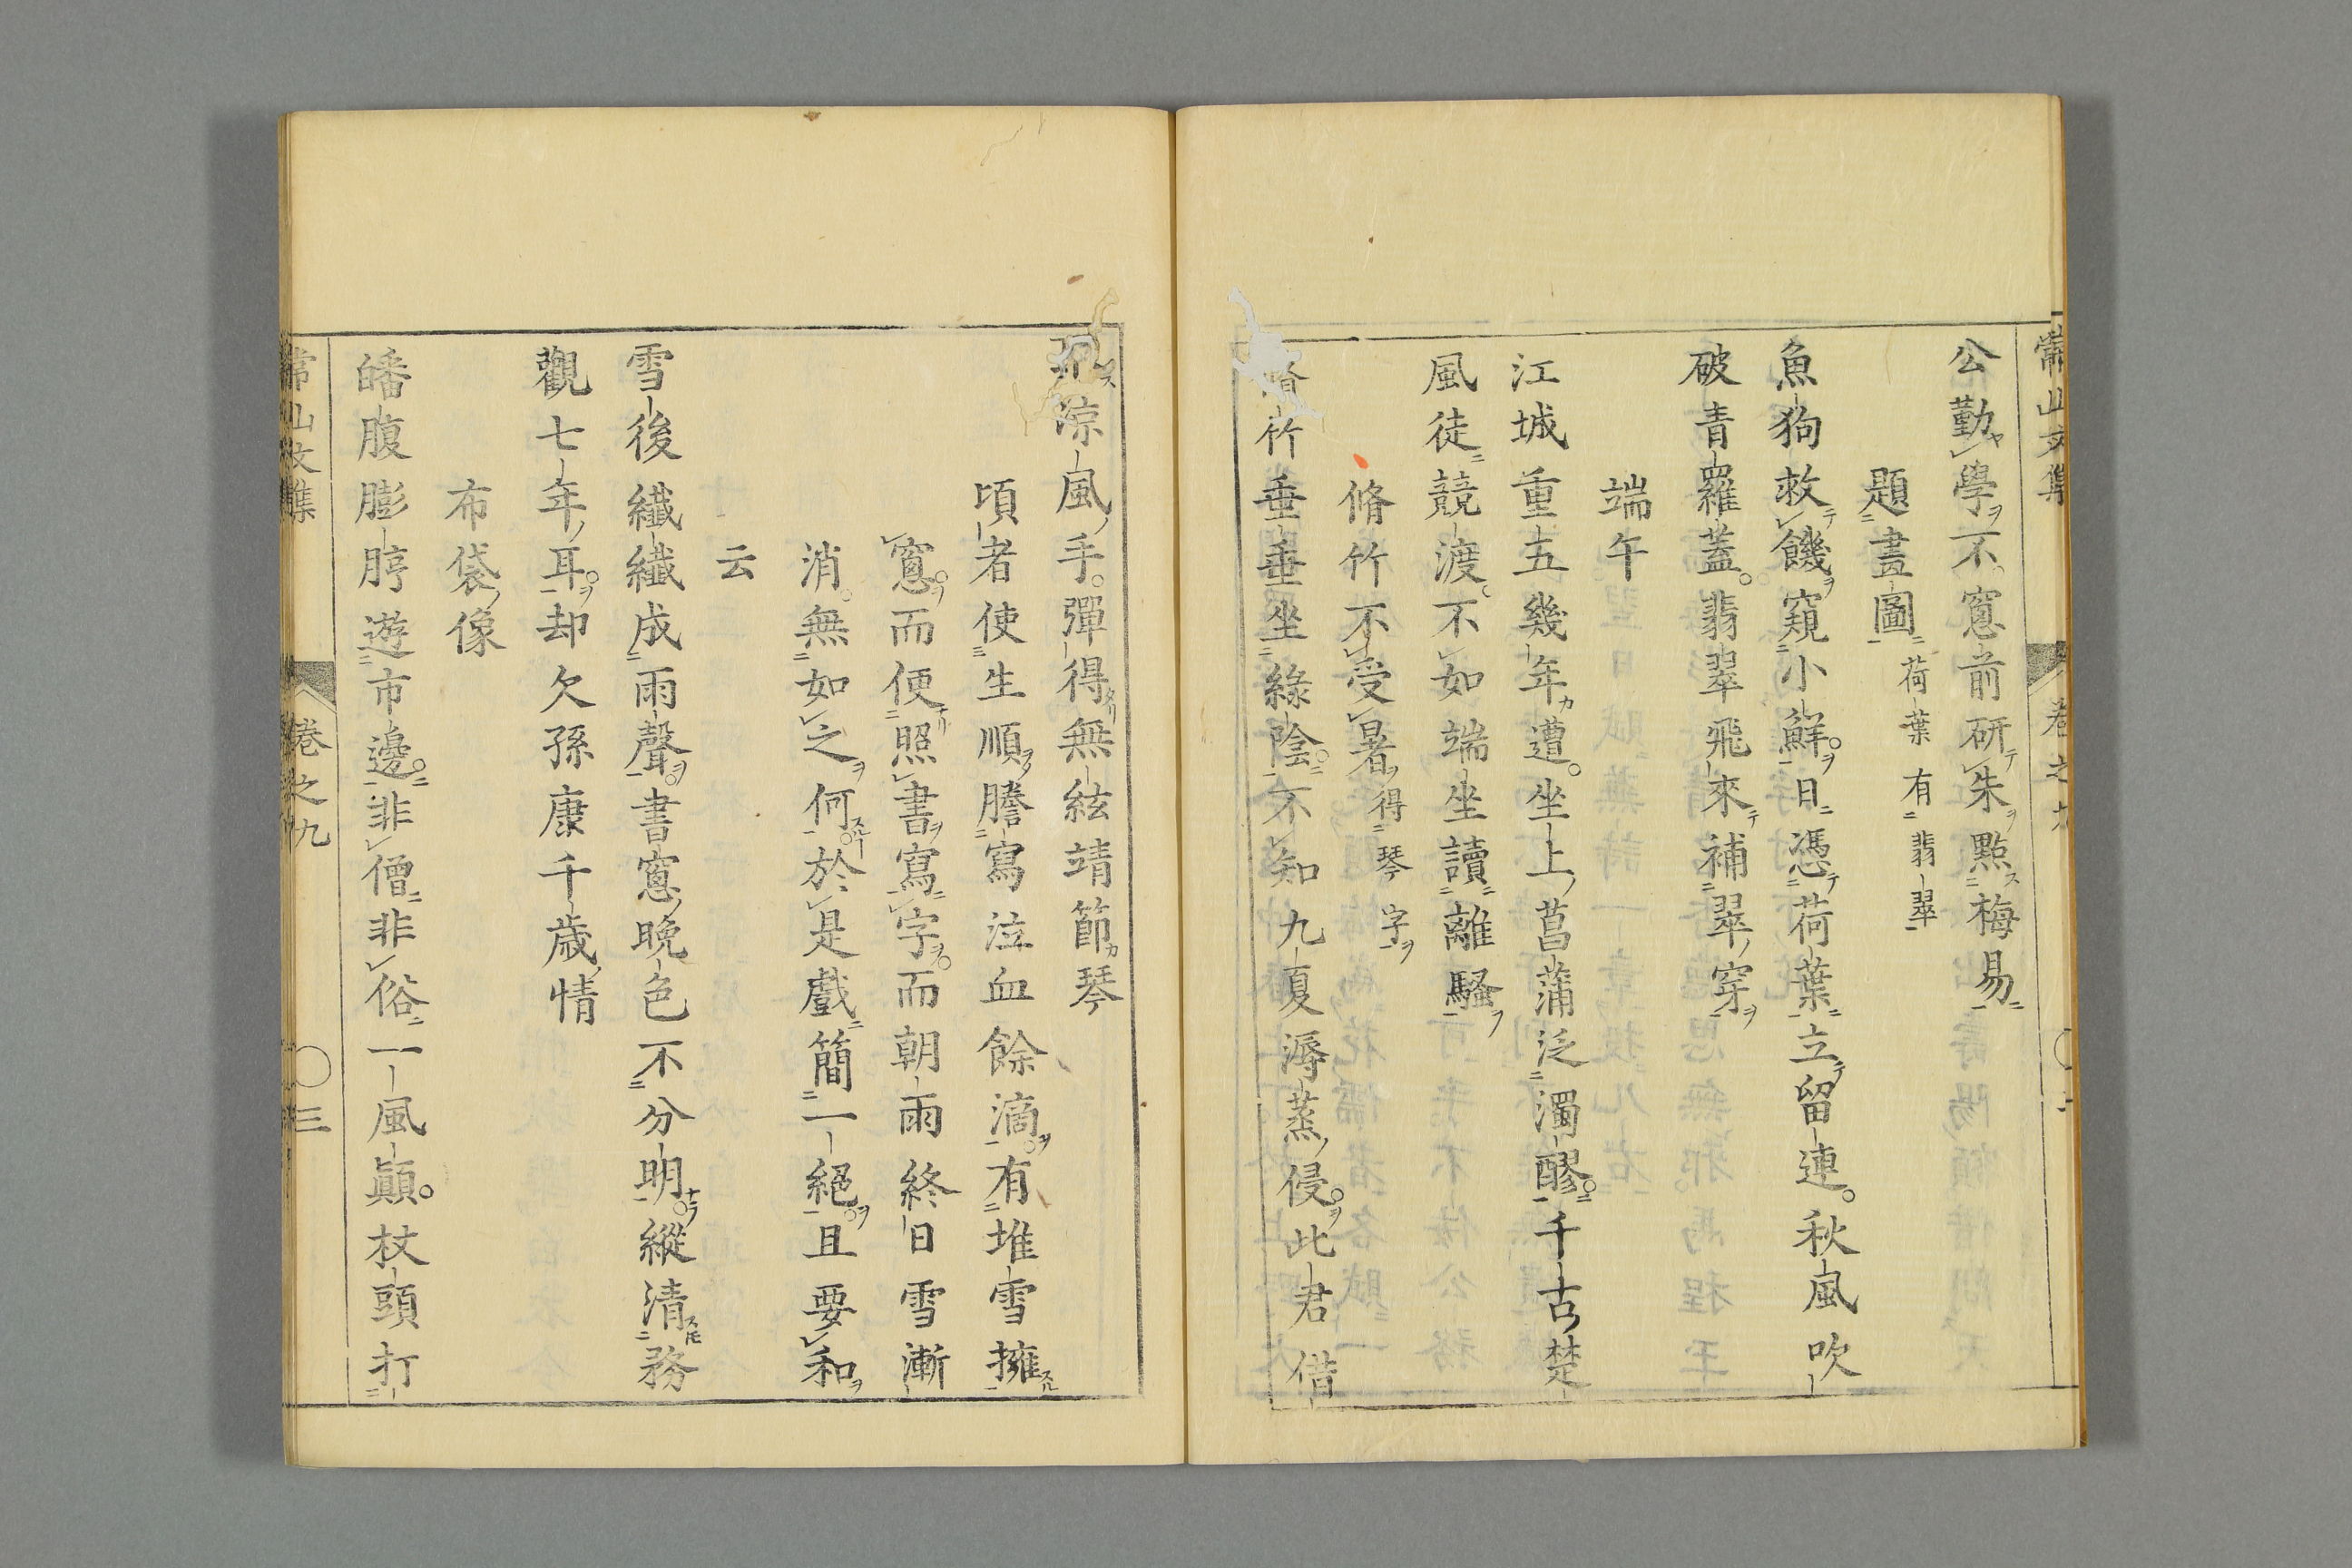 常山文集 卷之九
公勤學不窓前研朱點梅易
題畫圖 荷葉有翡翠
魚狗救饑窺小鮮日憑荷葉立留連秋風吹
破青羅蓋翡翠飛來補翠穿
端午
江城重五幾年遭坐上菖蒲泛濁醪千古楚
風徒競渡不如端坐讀離騷
脩竹不受暑 得琴字
脩竹垂垂坐綠陰不知九夏溽蒸侵此君借
涼風手彈得無絃靖節琴
頃者使生順謄寫泣血餘滴有堆雪擁
窓而便照書寫字而朝雨終日雪漸
消無如之何於是戲簡一絕且要和
云
雪後纖纖成雨聲書窓晚色不分明縱清務
觀七年耳却欠孫康千歲情
布袋像
皤腹膨脝遊市邊非僧非俗一風顛杖頭打
常山文集 卷之九 〇三